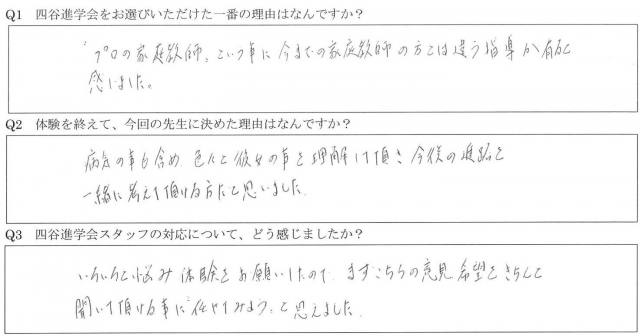 Q1 四谷進学会をお選びいただけた一番の理由はなんですか？
"プロの家庭教師"という事に今までの家庭教師の方とは違う指導が有ると
感じました。
Q2 体験を終えて、今回の先生に決めた理由はなんですか？
病気の事も含め 色んと彼女の事を理解して頂き 今後の進路を
一緒に考えて頂ける方だと思いました。
Q3 四谷進学会スタッフの対応について、どう感じましたか？
いろいろと悩み 体験をお願いしたので、まずこちらの意見 希望をきちんと
聞いて頂ける事に"任せてみよう"と思えました。